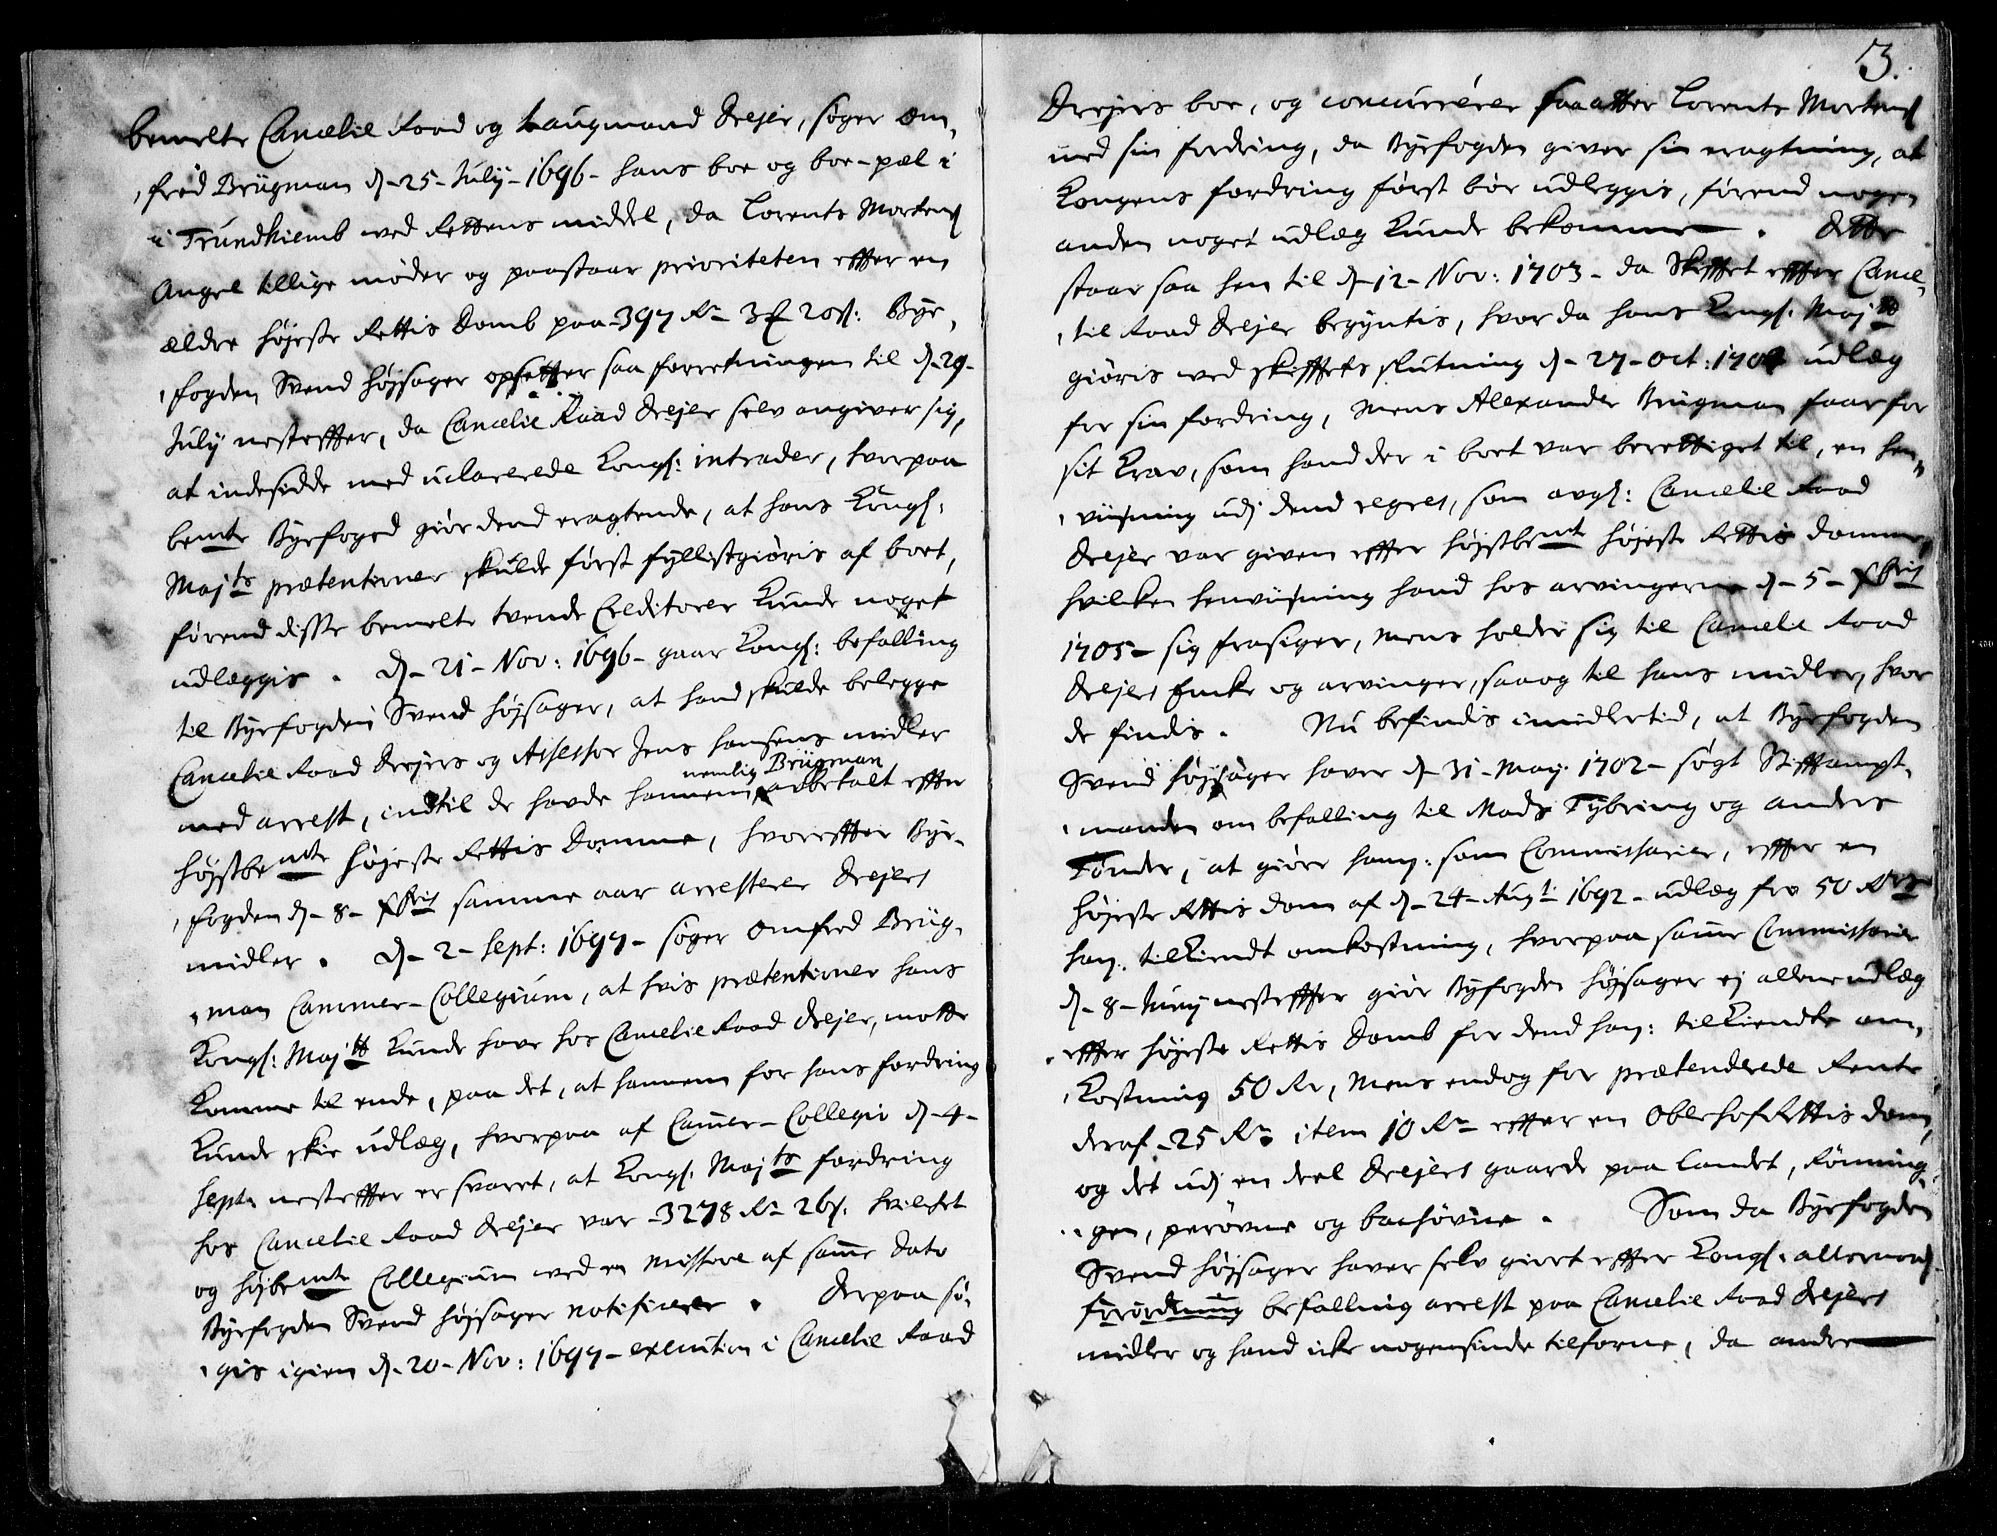 bemelte Cancelie Raad og Laugmand Drejer, søger Om-
fred Brügman d. 25 July 1696 hans boe og boe-pæl i
i Trundhiemb ved Rettens middel, da Lorents Mortens
Angel tillige møder og paastaar prioriteten effter en
ældre højeste Rettis Domb paa 397 Rd 3 ort 20 s: Bye-
fogden Svend Højsager opsetter saa forretningen til d. 29
July nesteffter, da Cancelie Raad Drejer selv angiver sig,
at indesidde med uclarerede Kongl: intrader, hvorpaa
bemte Byefoged giør dend eragtende, at hans Kongl:
Majts prætentioner skulde først fyllistgiøris af boet,
førend disse bemelte tvende Creditorer kunde noget
udlæggis. D. 21 Nov: 1696 gaar Kongl: befalling
til Byefogden Svend Højsager, at hand skulde belegge
Cancelie Raad Drejers og Assessor Jens Hansens midler
nemlig Brügman
med arrest, indtil de hafde hannem, betalt effter
højstbemte højeste Rettis Domme, hvoreffter Bye-
fogden d. 8 Xbris samme aar arresterer Drejers
midler. D. 2 Sept: 1697 søger Omfred Brüg-
man Cammer-Collegium, at hvis prætentioner hans
Kongl: Majtt kunde have hos Cancelie Raad Drejer, motte
komme til ende, paa det, at hannem for hans fordring
kunde skie udlæg, hvorpaa af Camer-Collegio d. 4
Septr nesteffter er svaret, at Kongl. Majts fordring
hos Cancelie Raad Drejer var 3278 Rd 26 s. hvilchet
og højbemte Collegium ved en missive af samme dato
Byefogden Svend Højsager notificerer. Derpaa sø-
gis igien d. 20 Nov: 1697 execution i Cancelie Raad
3.
Drejers boe, og concurrerer saa atter Lorents Mortens
med sin fordring, da Byefogden giver sin eragtning, at
Kongens fordring først bør udleggis, førend nogen
anden noget udlæg kunde bekomme. Dette
staar saa hen til d. 12 Nov: 1703 da Skifftet effter Cance-
til Raad Drejer begyntis, hvor da hans Kongl. Majtt
giøris ved skifftets slutning d. 27 Oct: 1704 udlæg
for sin fordring, mens Alexander Brügman faar for
sit krav, som hand der i boet var berettiget til, en hen-
viisning udj dend regres, som avgl: Cancelie Raad
Drejer var given effter højstbemt højeste Rettis domme,
hvilken henviisning hand hos arvingerne d. 5 Xbris
1705 sig frasiger, mens holder sig til Cancelie Raad
Drejers Encke og arvinger, saa og til hans midler, hvor
de findis. Nu befindis imidlertid, at Byefogden
Svend Højsager haver d. 31 May 1702 søgt Stifftampt-
manden om befalling til Mads Tybring og Anders
Tønder, at giøre ham: som Commissarier, effter en
højeste Rettis dom af d. 24 Augti 1692 udlæg for 50 Rdrs
ham: tilkiendt omkostning, hvorpaa samme Commissarier
d. 8 Juny nesteffter giør Byfogden Højsager ej allene udlæg
effter højeste Rettis Domb for dend ham: tilkiendte om-
kostning 50 Rd, mens endog for prætenderede Rente
deraf 25 Rd item 10 Rd effter en OberhofRettis dom,
og det udj en deel Drejers gaarde paa landet, Rønning-
gen, perøvne og bachøvne. Som da Byefogden
Svend Højsager haver selv giort effter Kongl. allernaad
forordning befalling arrest paa Cancelie Raad Drejers
midler og hand icke nogensinde tilforne, da andre